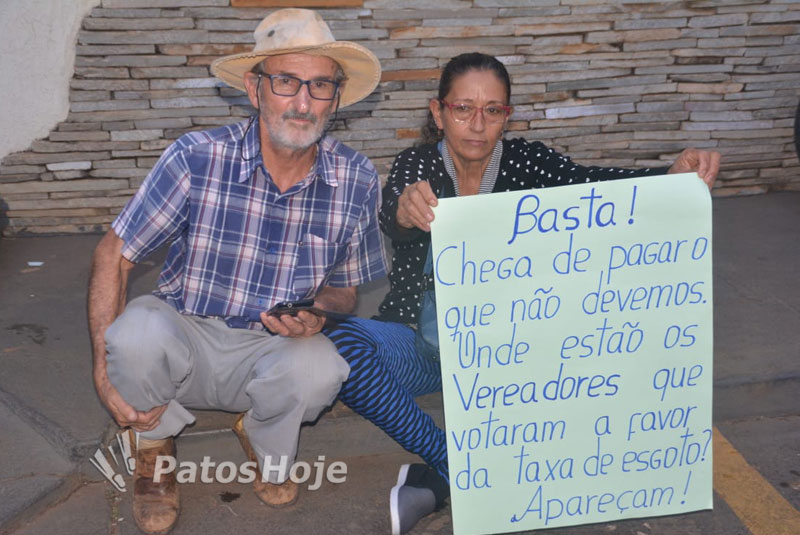 Basta!
Chega de pagar o
que não devemos.
Onde estão os
Vereadores que
votaram a favor
da taxa de esgoto?
Apareçam!
PatosHoje